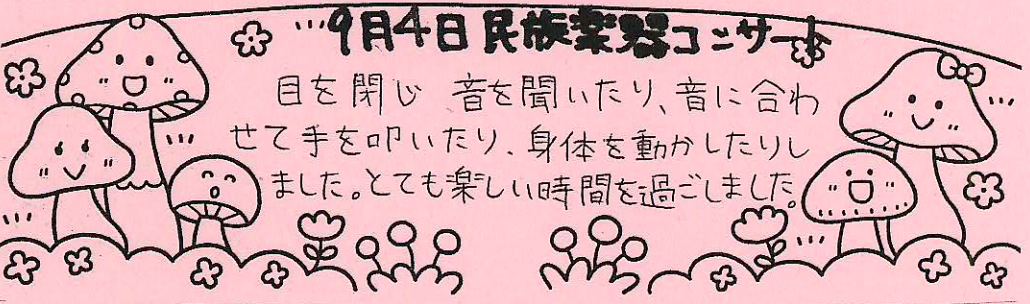 9月4日民族楽器コンサート
目を閉じ 音を聞いたり、音に合わ
せて手を叩いたり、身体を動かしたりし
ました。とても楽しい時間を過ごしました。